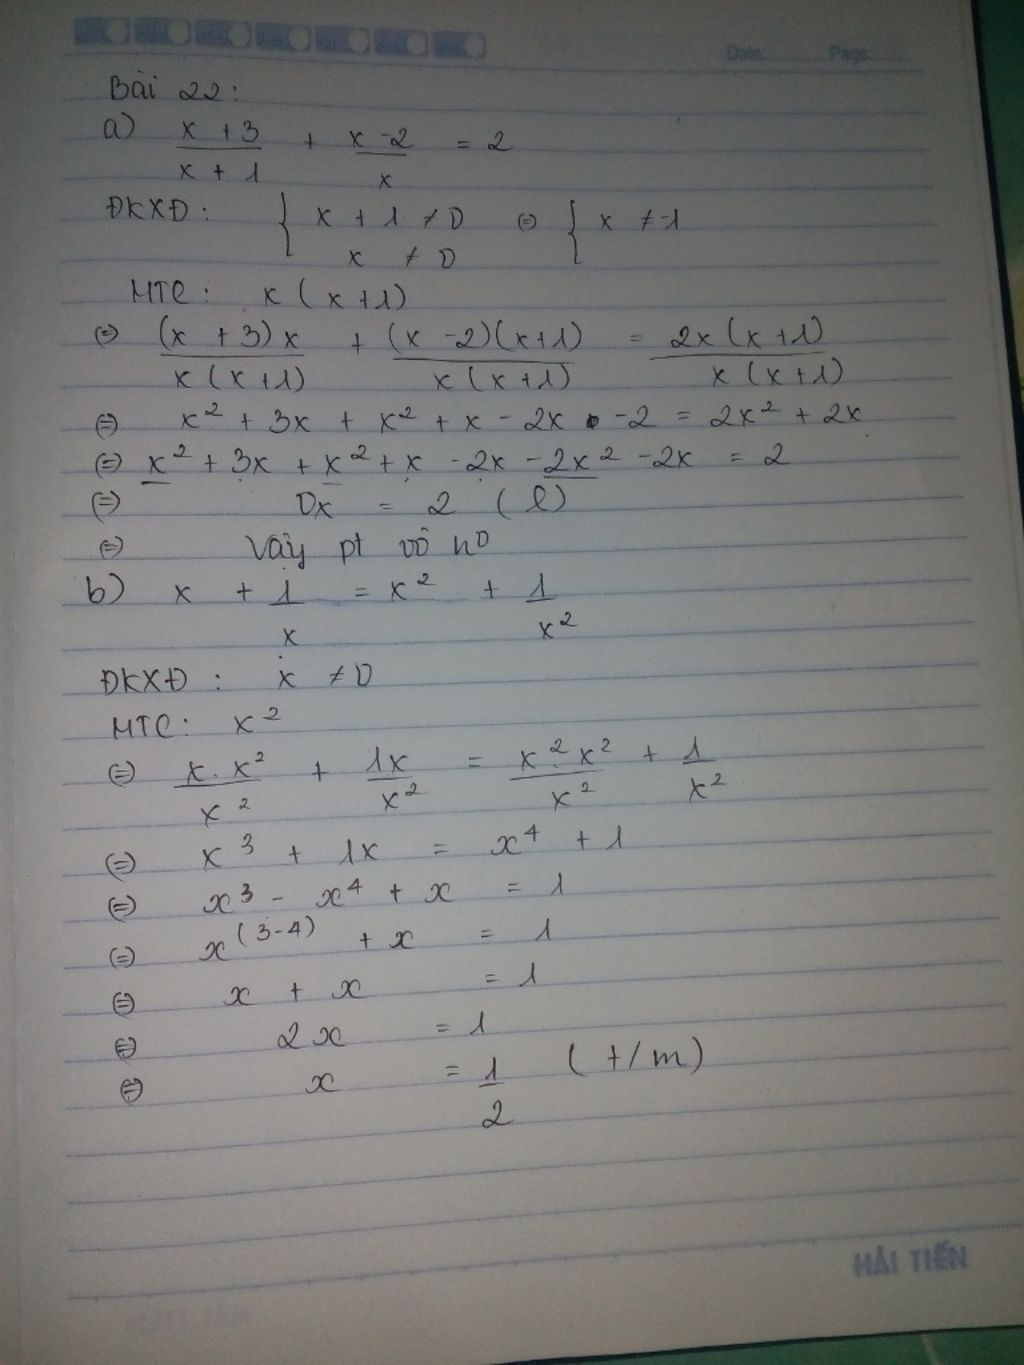 Date............ Page:........
Bài 22:
a) (x + 3)/(x + 1) + (x - 2)/x = 2
ĐKXĐ: { x + 1 ≠ 0 ⇔ { x ≠ -1
x ≠ 0
MTC: x (x + 1)
⇔ ((x + 3) x)/(x (x + 1)) + ((x - 2)(x + 1))/(x (x + 1)) = (2x (x + 1))/(x (x + 1))
⇔ x² + 3x + x² + x - 2x - 2 = 2x² + 2x
⇔ x² + 3x + x² + x - 2x - 2x² - 2x = 2
⇔ 0x = 2 (l)
⇔ Vậy pt vô n⁰
b) x + 1/x = x² + 1/x²
ĐKXĐ: x ≠ 0
MTC: x²
⇔ (x . x²)/x² + 1x/x² = (x² . x²)/x² + 1/x²
⇔ x³ + 1x = x⁴ + 1
⇔ x³ - x⁴ + x = 1
⇔ x^(3-4) + x = 1
⇔ x + x = 1
⇔ 2x = 1
⇔ x = 1/2 (t/m)
HẢI TIẾN